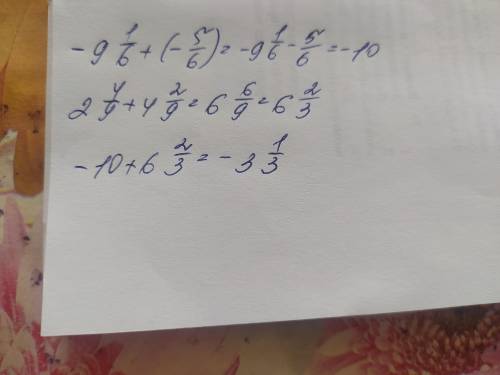 -9 1/6 + (-5/6) = -9 1/6 - 5/6 = -10
2 4/9 + 4 2/9 = 6 6/9 = 6 2/3
-10 + 6 2/3 = -3 1/3